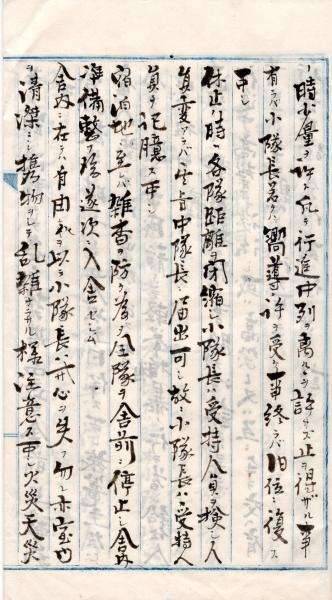 時少量ヲ許ス凡ソ行進中列ヲ離ルヽヲ許サズ止ヲ得ザル事
有ラバ小隊長若クハ嚮導ノ許ヲ受ヘシ事終ラバ旧位ニ復ス
可シ
休止ノ時ハ各隊距離ヲ閉縮シ小隊長ハ受持人員ヲ検シ人
員変アラバ中隊長ニ届出可シ故ニ小隊長ハ受持人
員ヲ記臆ス可シ
宿泊地ニ至レバ雑沓ヲ防ク為ヲ全隊ヲ舎前ニ停止シ舎内
準備整フ後逐次ニ入舎セシム
舎内ニ在テハ自由ヲ以ヲ小隊長ハ戒心ヲ失フ勿レ亦室内
ヲ清潔ニシ携物ヲシテ乱雑ナラザル様注意ス可シ火災天災